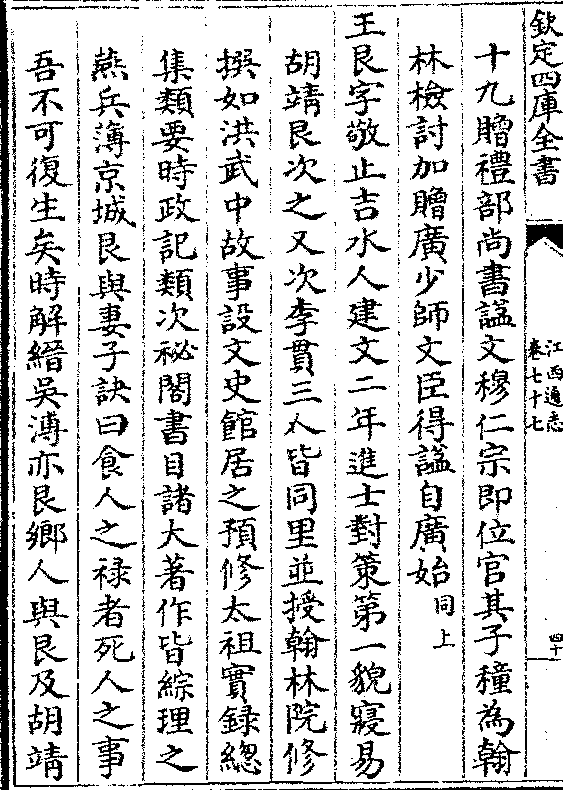 欽定四庫全書
江西通志
卷七十七
四十
十九贈禮部尚書諡文穆仁宗即位官其子穜為翰
林檢討加贈廣少師文臣得諡自廣始同上
王艮字敬止吉水人建文二年進士對策第一貌寢易
胡靖艮次之又次李貫三人皆同里並授翰林院修
撰如洪武中故事設文史館居之預修太祖實録總
集類要時政記類次秘閣書目諸大著作皆綜理之
燕兵薄京城艮與妻子訣曰食人之禄者死人之事
吾不可復生矣時解縉吳溥亦艮鄉人與艮及胡靖